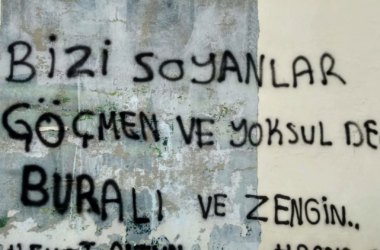 BiZi SOYANLAR
GÖÇMEN VE YOKSUL DE
BURALI VE ZENGiN..